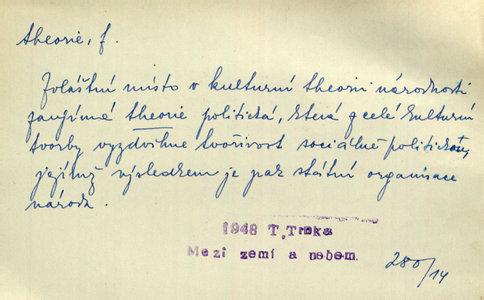 theorie, f.
Zvláštní místo v kulturní theorii národnosti
zaujímá theorie politická, která z celé kulturní
tvorby vyzdvihne tvořivost sociálně politickou,
jejímž výsledkem je pak státní organisace
národa.
1948 T. Trnka
Mezi zemí a nebem.
280/14